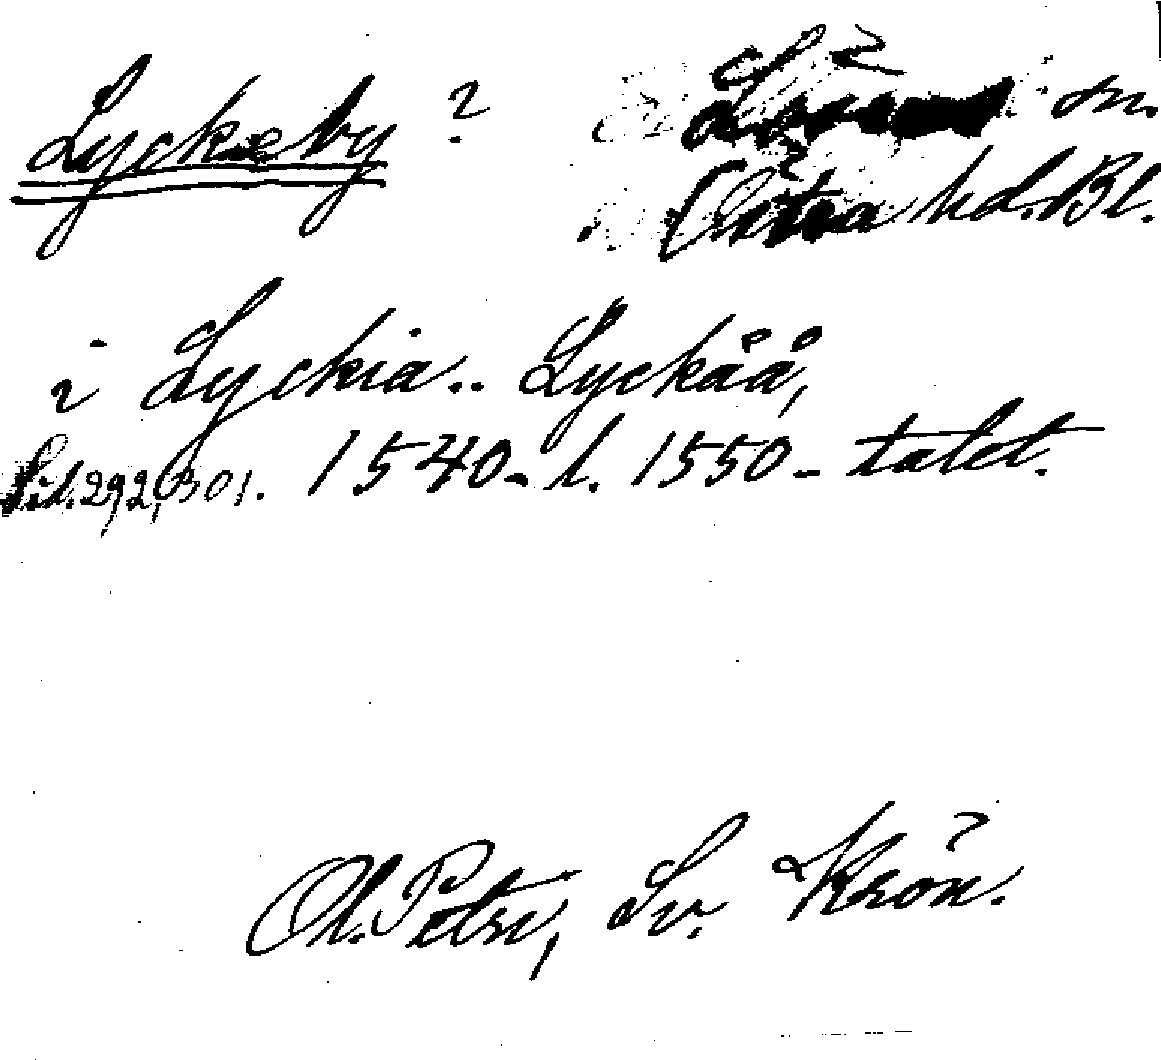 Lyckeby ? Lösens sn.
Östra hd. Bl.
i Lyckia.. Lyckåå,
Sid. 292, 301. 1540- l. 1550-talet.
Ol. Petri, Sv. Krön.